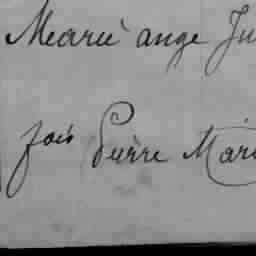 Marie ange Ju
fois Pierre Mari